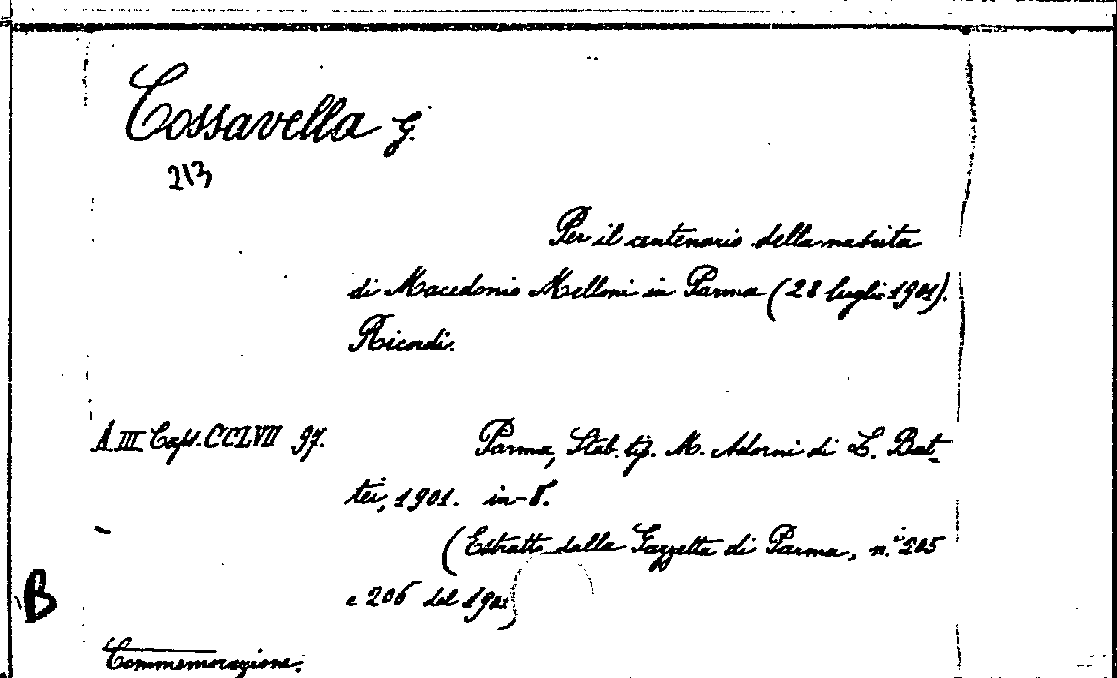 Cossavella G.
213
Per il centenario della nascita
di Macedonio Melloni in Parma (28 luglio 1901).
Ricordi.
A. III Caps. CCLVII 97.
Parma, Stab. tip. M. Adorni di L. Bat-
tei, 1901. in-8°.
(Estratto dalla Gazzetta di Parma, n.i 205
e 206 del 1901)
B
Commemorazione.